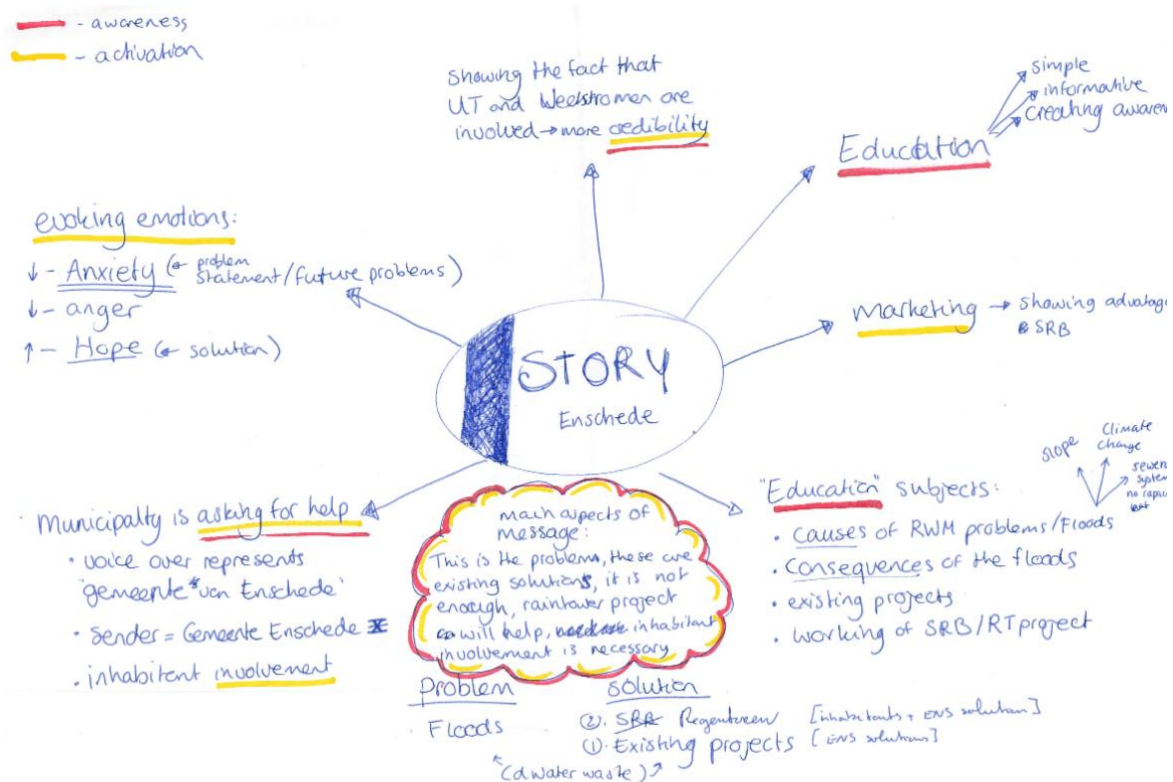 - awareness
- activation
Showing the fact that
UT and Weelstromen are
involved → more credibility
Education
simple
informative
creating awaren
evoking emotions:
↓ - Anxiety (← problem
statement/future problems)
↓ - anger
↑ - Hope (← solution)
STORY
Enschede
marketing → showing advatage
SRB
Municipalty is asking for help
• voice over represents
'gemeente van Enschede'
• sender = Gemeente Enschede
• inhabitent involvement
main aspects of
message:
This is the problems, these are
existing solutions, it is not
enough, raintower project
will help, inhabitant
involvement is necessary
"Education" subjects:
• Causes of RWM problems/Floods
• Consequences of the floods
• existing projects
• working of SRB/RT project
slope
climate
change
sewer
system
no
problem
Floods
solution
②. SRB Regentoren [inhabitants + ENS solution]
①. Existing projects [ENS solutions]
(d water waste)